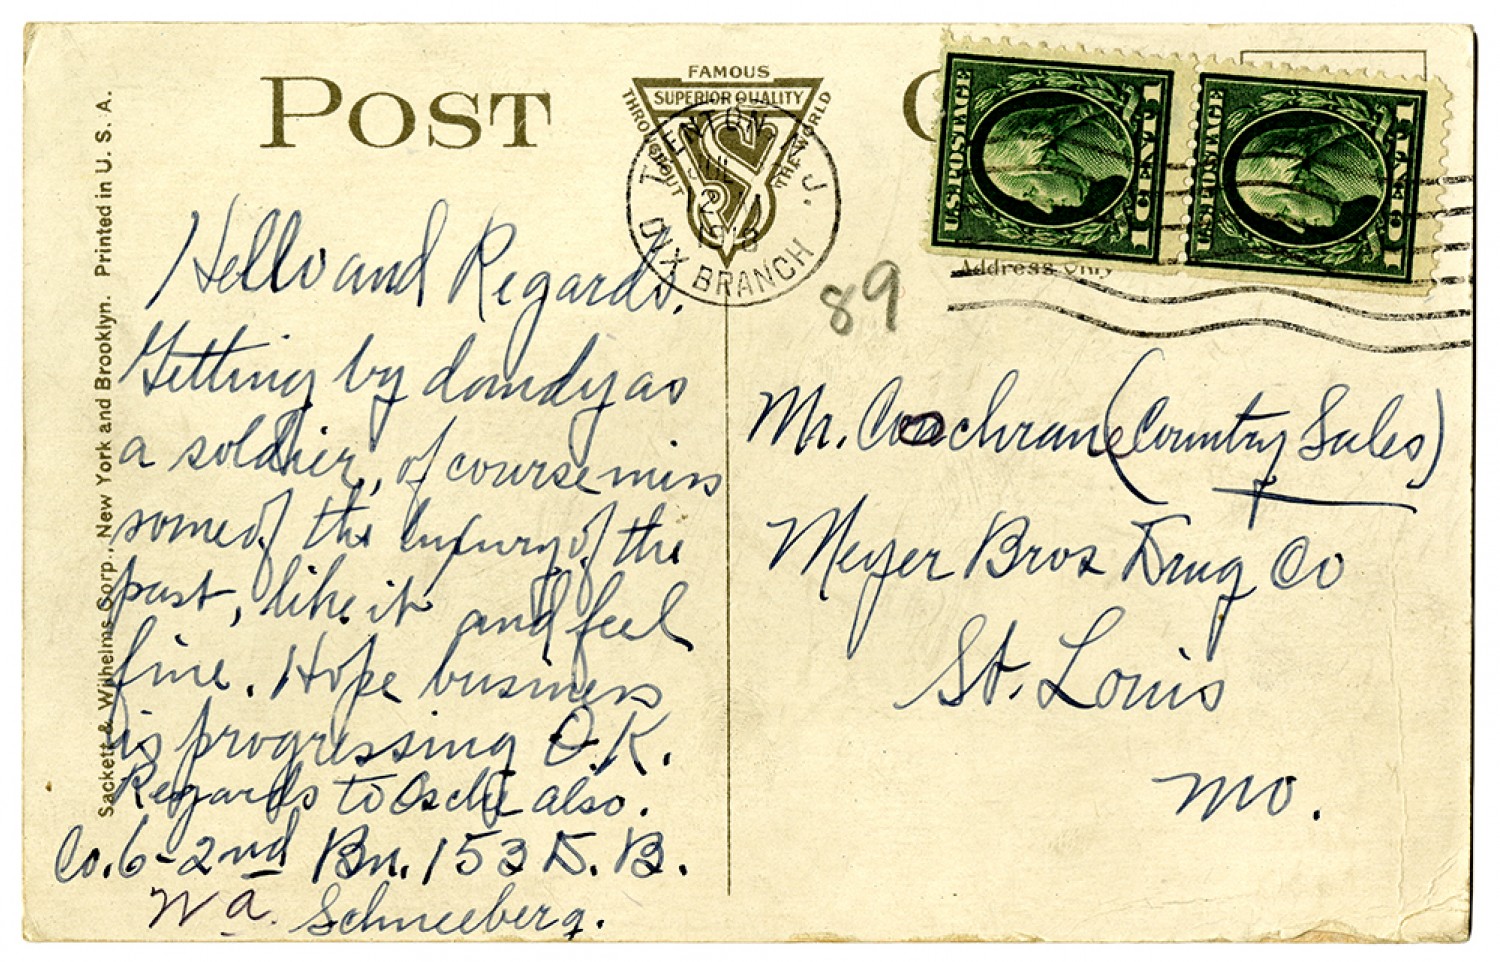 POST
C
FAMOUS
SUPERIOR QUALITY
THROUGHOUT
THE WORLD
TRENTON N. J.
JUL
2
1918
DIX BRANCH
U.S. POSTAGE
1 CENT 1
U.S. POSTAGE
1 CENT 1
Address Only
89
Hello and Regards.
Getting by dandy as
a soldier, of course miss
some of the luxury of the
past, like it and feel
fine. Hope business
is progressing O.K.
Regards to also.
Co. 6 - 2nd Bn. 153 D. B.
Wa. Schneeberg.
Mr. Cochran (Country Sales)
Meyer Bros Drug Co
St. Louis
Mo.
Sackett & Wilhelms Corp., New York and Brooklyn. Printed in U. S. A.